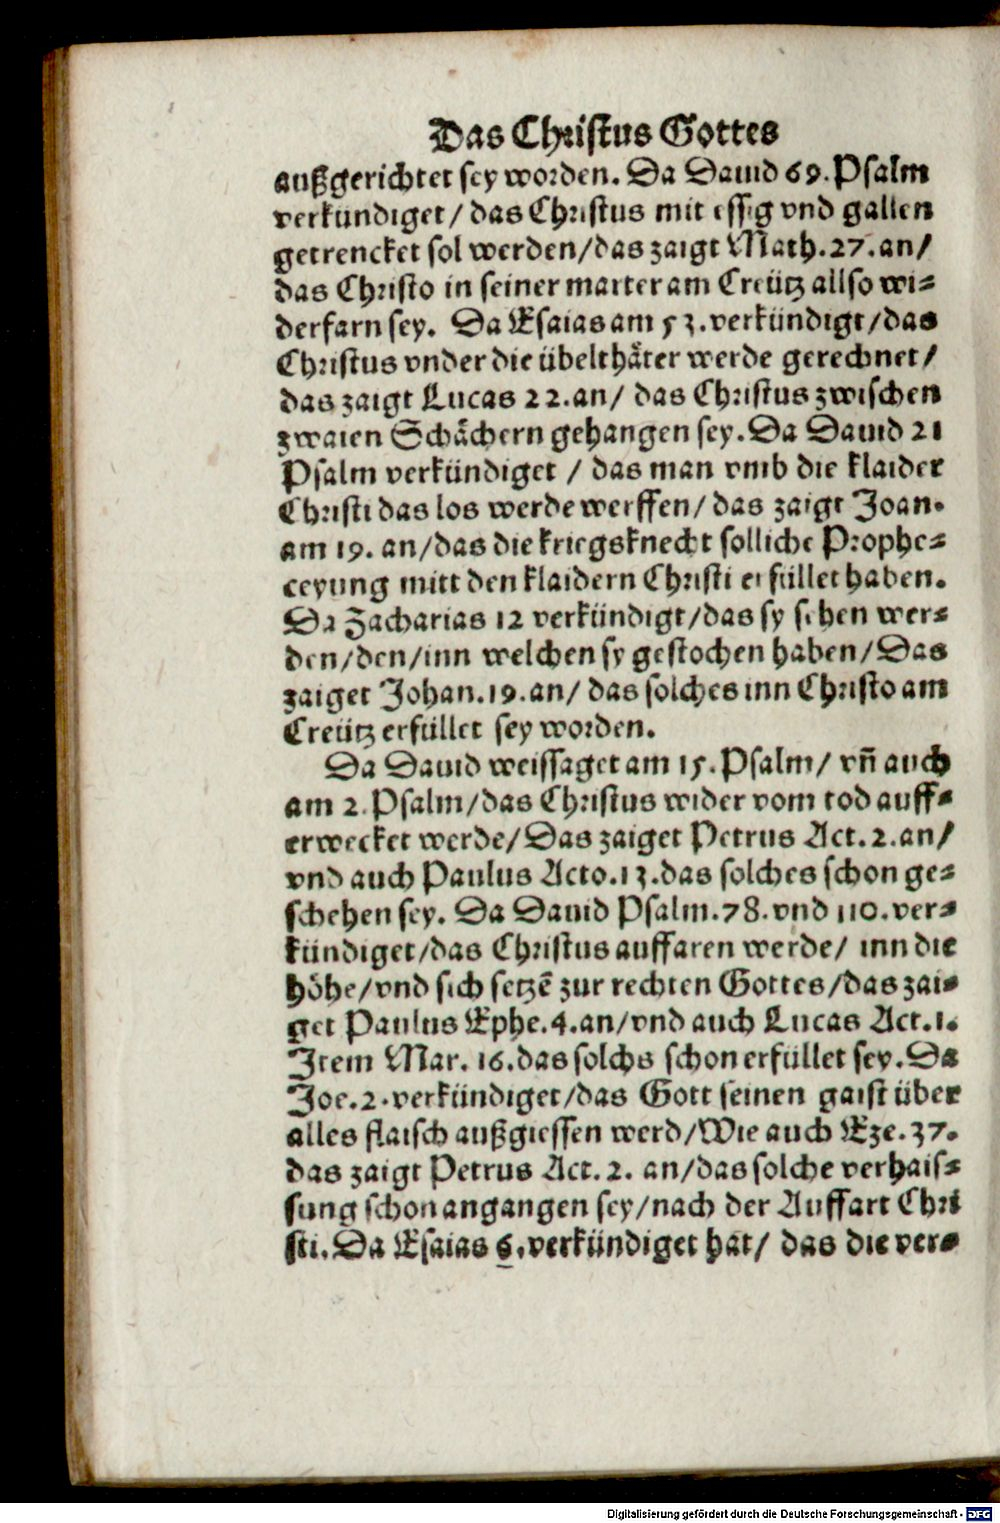 Das Christus Gottes
außgerichtet sey worden. Da Dauid 69. Psalm
verkündiget / das Christus mit essig vnd gallen
getrencket sol werden/das zaigt Math.27.an/
das Christo in seiner marter am Creütz allso wi-
derfarn sey. Da Esaias am 53.verkündigt/das
Christus vnder die übelthäter werde gerechnet/
das zaigt Lucas 22.an/ das Christus zwischen
zwaien Schächern gehangen sey. Da Dauid 21
Psalm verkündiget / das man vmb die klaider
Christi das los werde werffen/ das zaigt Joan.
am 19. an/das die kriegsknecht solliche Prophe-
ceyung mitt den klaidern Christi erfüllet haben.
Da Zacharias 12 verkündigt/das sy sehen wer-
den/den/inn welchen sy gestochen haben/Das
zaiget Johan.19.an/ das solches inn Christo am
Creütz erfüllet sey worden.
Da Dauid weissaget am 15. Psalm/ vñ auch
am 2. Psalm/das Christus wider vom tod auff-
erwecket werde/Das zaiget Petrus Act.2.an/
vnd auch Paulus Acto.13.das solches schon ge-
schehen sey. Da Dauid Psalm.78.vnd 110.ver-
kündiget/das Christus auffaren werde/ inn die
höhe/vnd sich setzē zur rechten Gottes/das zai-
get Paulus Ephe.4.an/vnd auch Lucas Act.1.
Item Mar. 16.das solchs schon erfüllet sey. Da
Joe.2.verkündiget/das Gott seinen gaist über
alles flaisch außgiessen werd/Wie auch Eze.37.
das zaigt Petrus Act.2. an/das solche verhais-
sung schon angangen sey/nach der Auffart Chri
sti. Da Esaias 6.verkündiget hat/ das die ver-
Digitalisierung gefördert durch die Deutsche Forschungsgemeinschaft - DFG